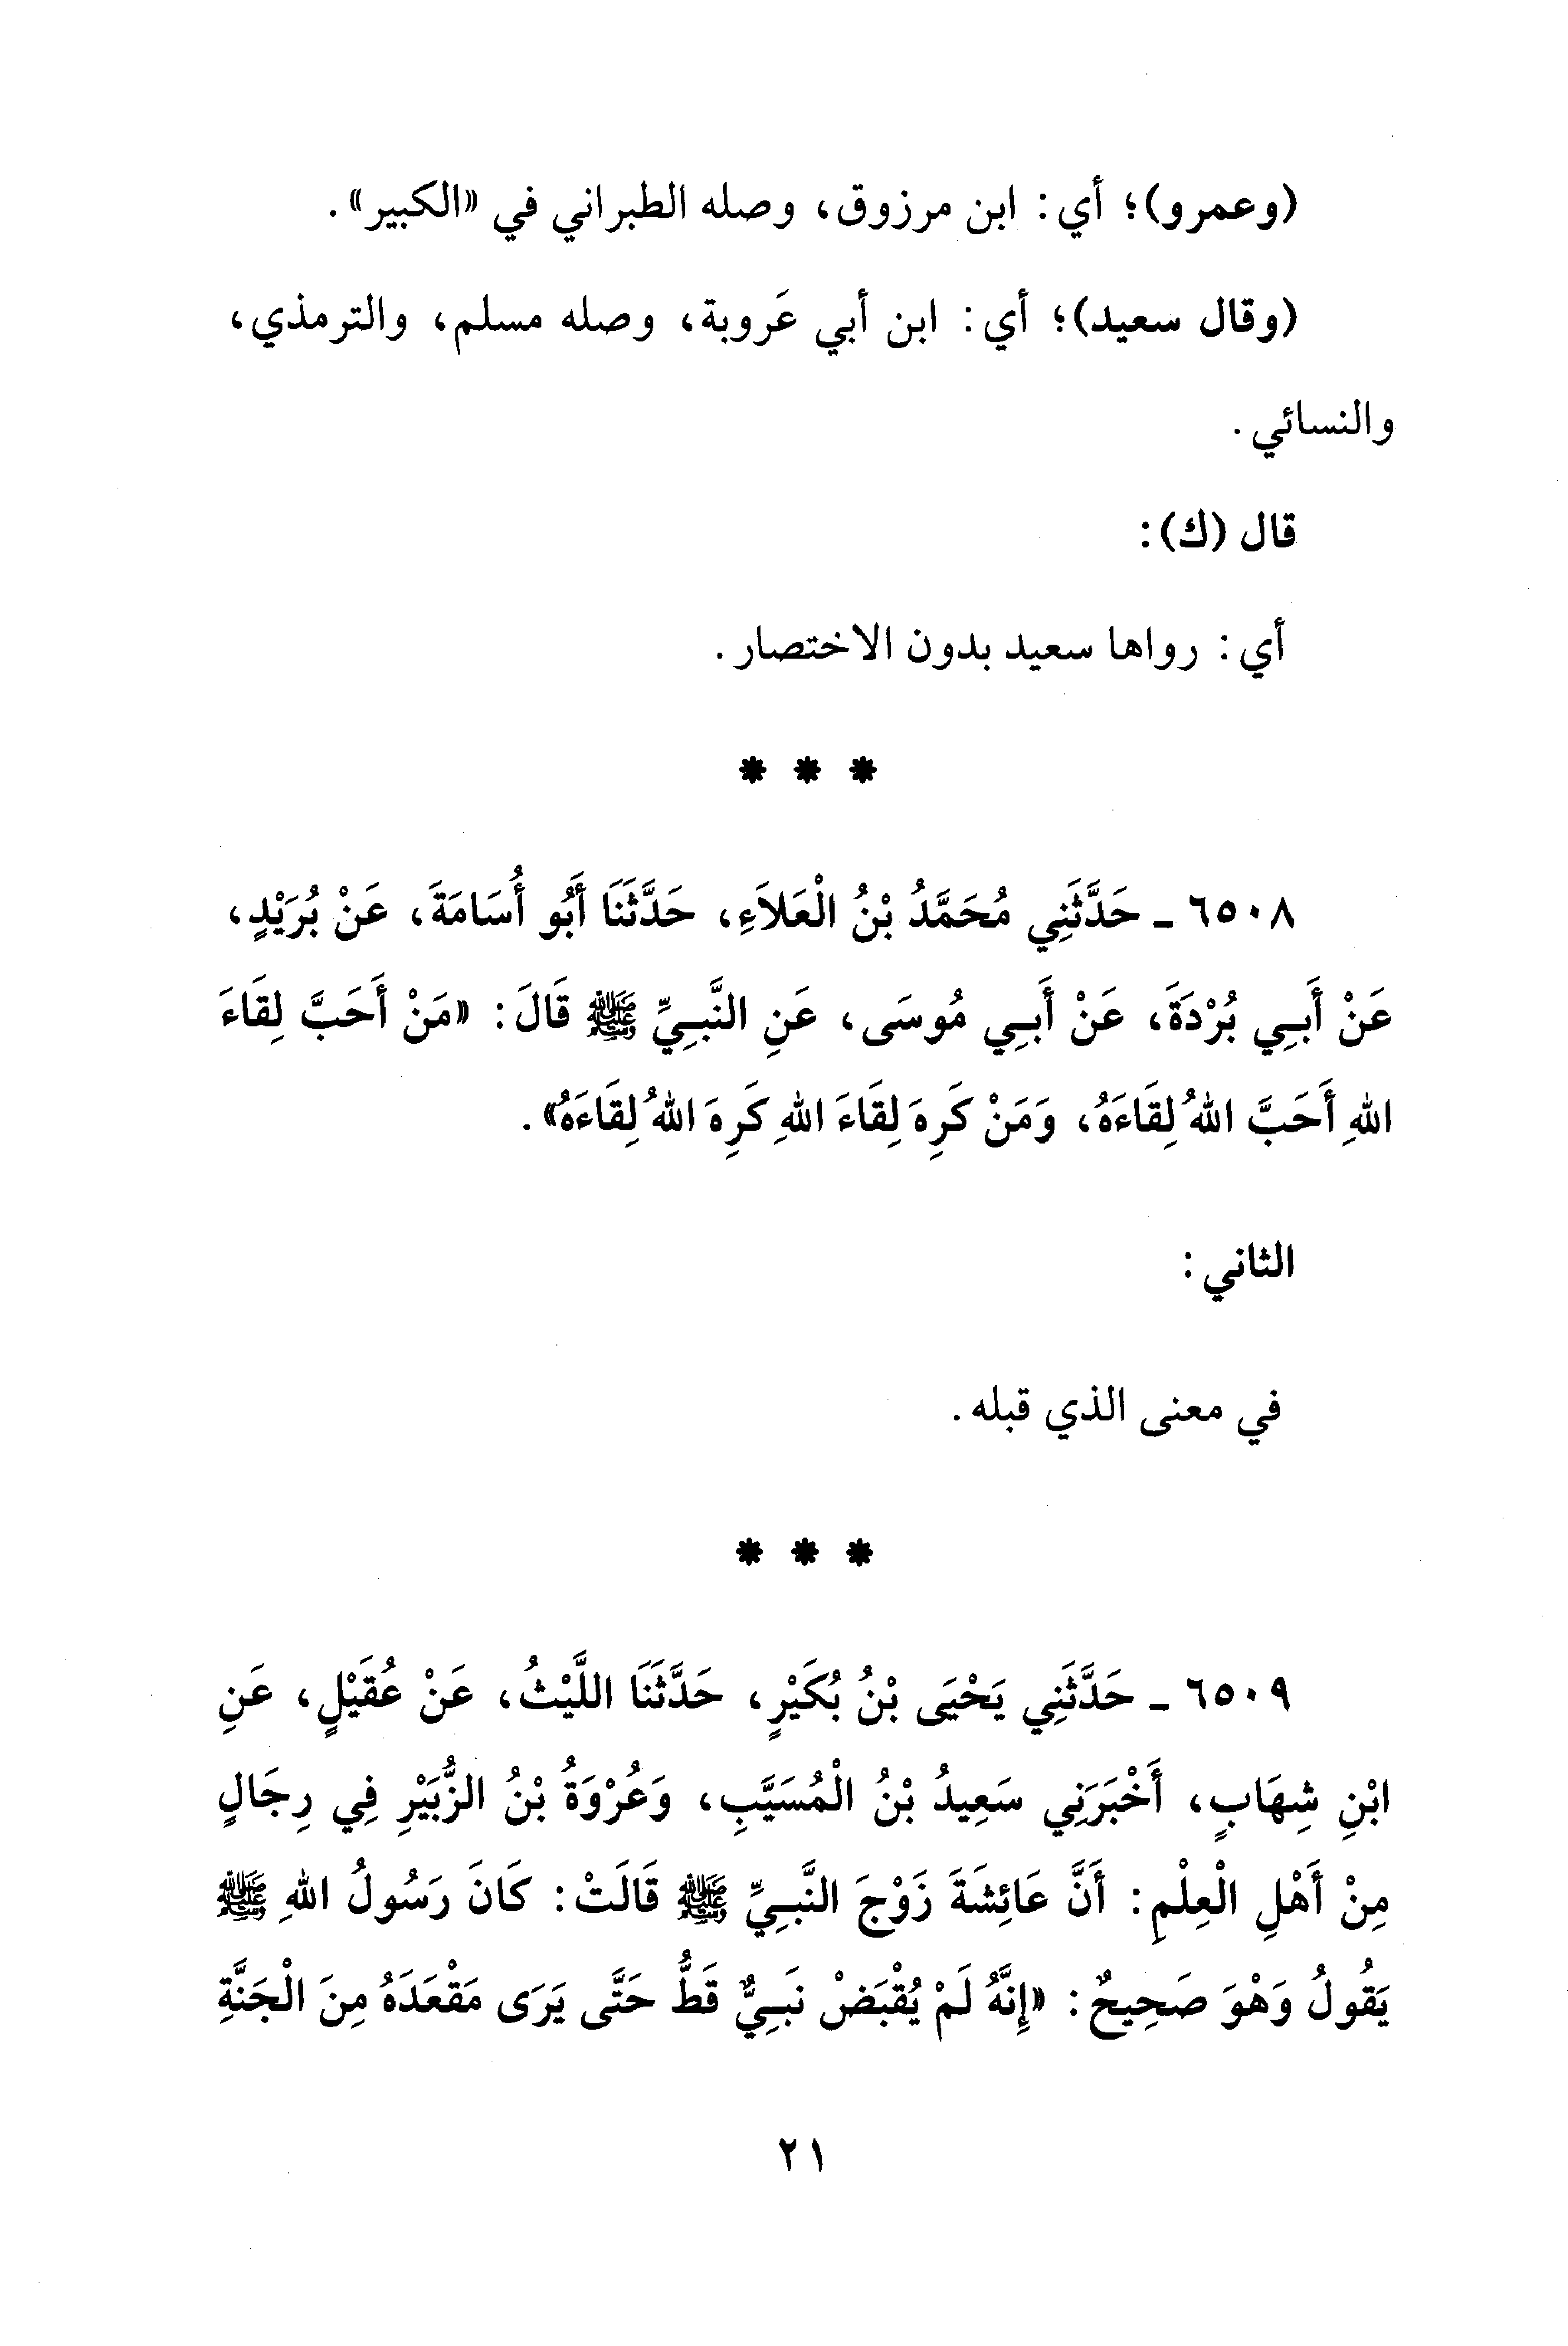 (وعمرو)؛ أي: ابن مرزوق، وصله الطبراني في «الكبير».
(وقال سعيد)؛ أي: ابن أبي عَروبة، وصله مسلم، والترمذي،
والنسائي.
قال (ك):
أي: رواها سعيد بدون الاختصار.
* * *
٦٥٠٨ ـ حَدَّثَنِي مُحَمَّدُ بْنُ الْعَلاَءِ، حَدَّثَنَا أَبُو أُسَامَةَ، عَنْ بُرَيْدٍ،
عَنْ أَبِي بُرْدَةَ، عَنْ أَبِي مُوسَى، عَنِ النَّبِيِّ ﷺ قَالَ: «مَنْ أَحَبَّ لِقَاءَ
اللهِ أَحَبَّ اللهُ لِقَاءَهُ، وَمَنْ كَرِهَ لِقَاءَ اللهِ كَرِهَ اللهُ لِقَاءَهُ».
الثاني:
في معنى الذي قبله.
* * *
٦٥٠٩ ـ حَدَّثَنِي يَحْيَى بْنُ بُكَيْرٍ، حَدَّثَنَا اللَّيْثُ، عَنْ عُقَيْلٍ، عَنِ
ابْنِ شِهَابٍ، أَخْبَرَنِي سَعِيدُ بْنُ الْمُسَيَّبِ، وَعُرْوَةُ بْنُ الزُّبَيْرِ فِي رِجَالٍ
مِنْ أَهْلِ الْعِلْمِ: أَنَّ عَائِشَةَ زَوْجَ النَّبِيِّ ﷺ قَالَتْ: كَانَ رَسُولُ اللهِ ﷺ
يَقُولُ وَهْوَ صَحِيحٌ: «إِنَّهُ لَمْ يُقْبَضْ نَبِيٌّ قَطُّ حَتَّى يَرَى مَقْعَدَهُ مِنَ الْجَنَّةِ
٢١